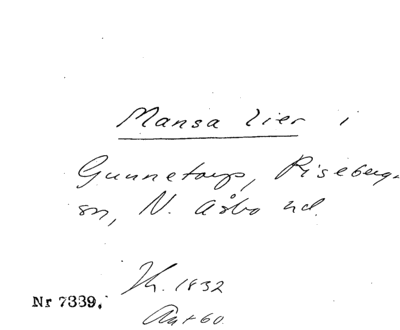 Mansa lier i
Gunnetorp, Riseberga
sn, N. Åsbo hd.
Th. 1832
Nr 7339.
Ант 60